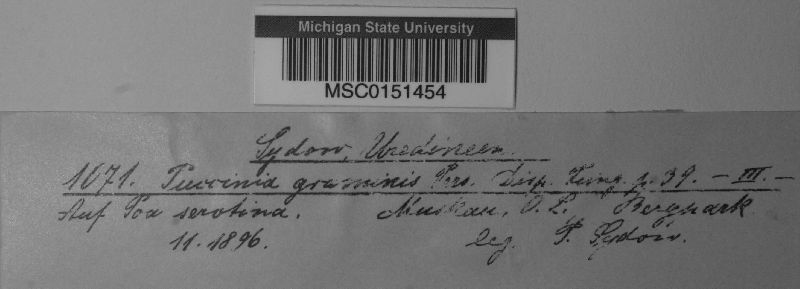 Michigan State University
MSC0151454
Sydow, Uredineen.
1071. Puccinia graminis Pers. Disp. Fung. p. 39. – III. –
Auf Poa serotina. Muskau, O. L. Bergpark
11. 1896. leg. P. Sydow.